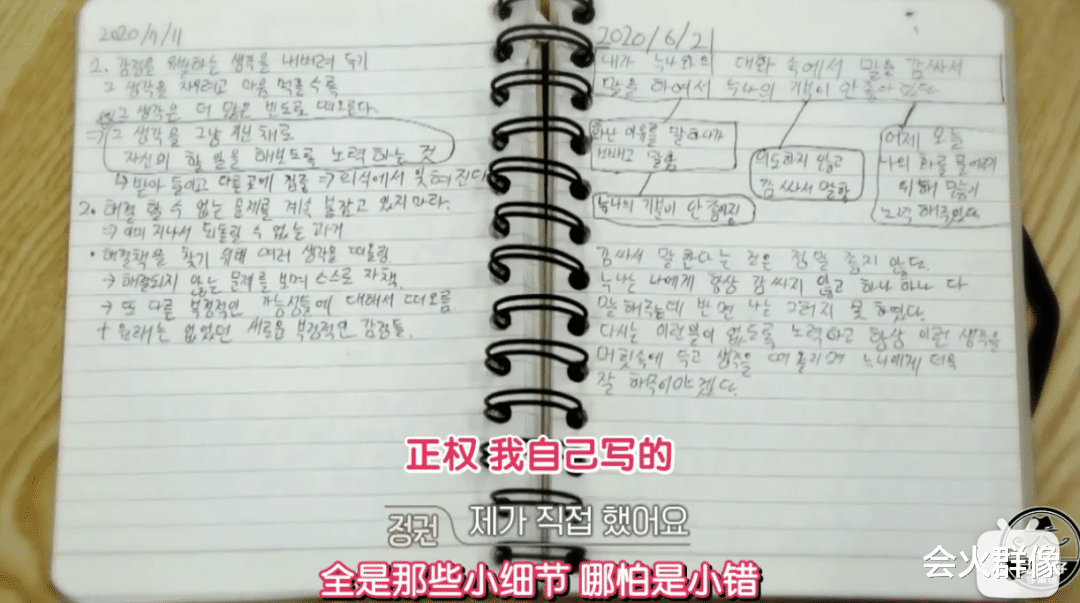 2020/7/11
1. 감정을 유발하는 생각을 내버려 두기
그 생각을 지우려고 마음 먹을수록
그 생각은 더 많은 빈도로 떠오른다.
⇒ 그 생각을 그냥 채로
자신의 할 일을 해보도록 노력 하는 것
↳ 받아 들이고 다른곳에 집중 ⇒ 의식에서 잊혀진다
2. 해결 할 수 없는 문제를 계속 붙잡고 있지 마라.
⇒ 이미 지나서 되돌릴 수 없는 과거
• 해결책을 찾기 위해 여러 생각을 떠올림.
→ 해결되지 않는 문제를 보며 스스로 자책.
→ 또 다른 부정적인 가능성들에 대해서 떠오름.
+ 원래는 없었던 새로운 부정적인 감정들.
2020/6/21
내가 누나와의 대화 속에서 말을 감싸서
말을 하여서 누나의 기분이 안좋아졌다
화난 이유를 말하다가
빼고 말함
의도하지 않고
감싸서 말함
어제 오늘
나의 화를 풀어주기
위해 많이
노력 해주었다
누나의 기분이 안 좋아짐
감싸서 말 한다는 것은 정말 좋지 않다.
누나는 나에게 항상 감싸지 않고 하나 하나 다
말해주는데 반면 나는 그러지 못 하였다.
다시는 이런일이 없도록 노력하고 항상 이런 생각을
머릿속에 두고 생각을 떠올리며 누나에게 더욱
잘 해줘야겠다.
正权 我自己写的
정권 제가 직접 했어요
全是那些小细节 哪怕是小错
会火群像